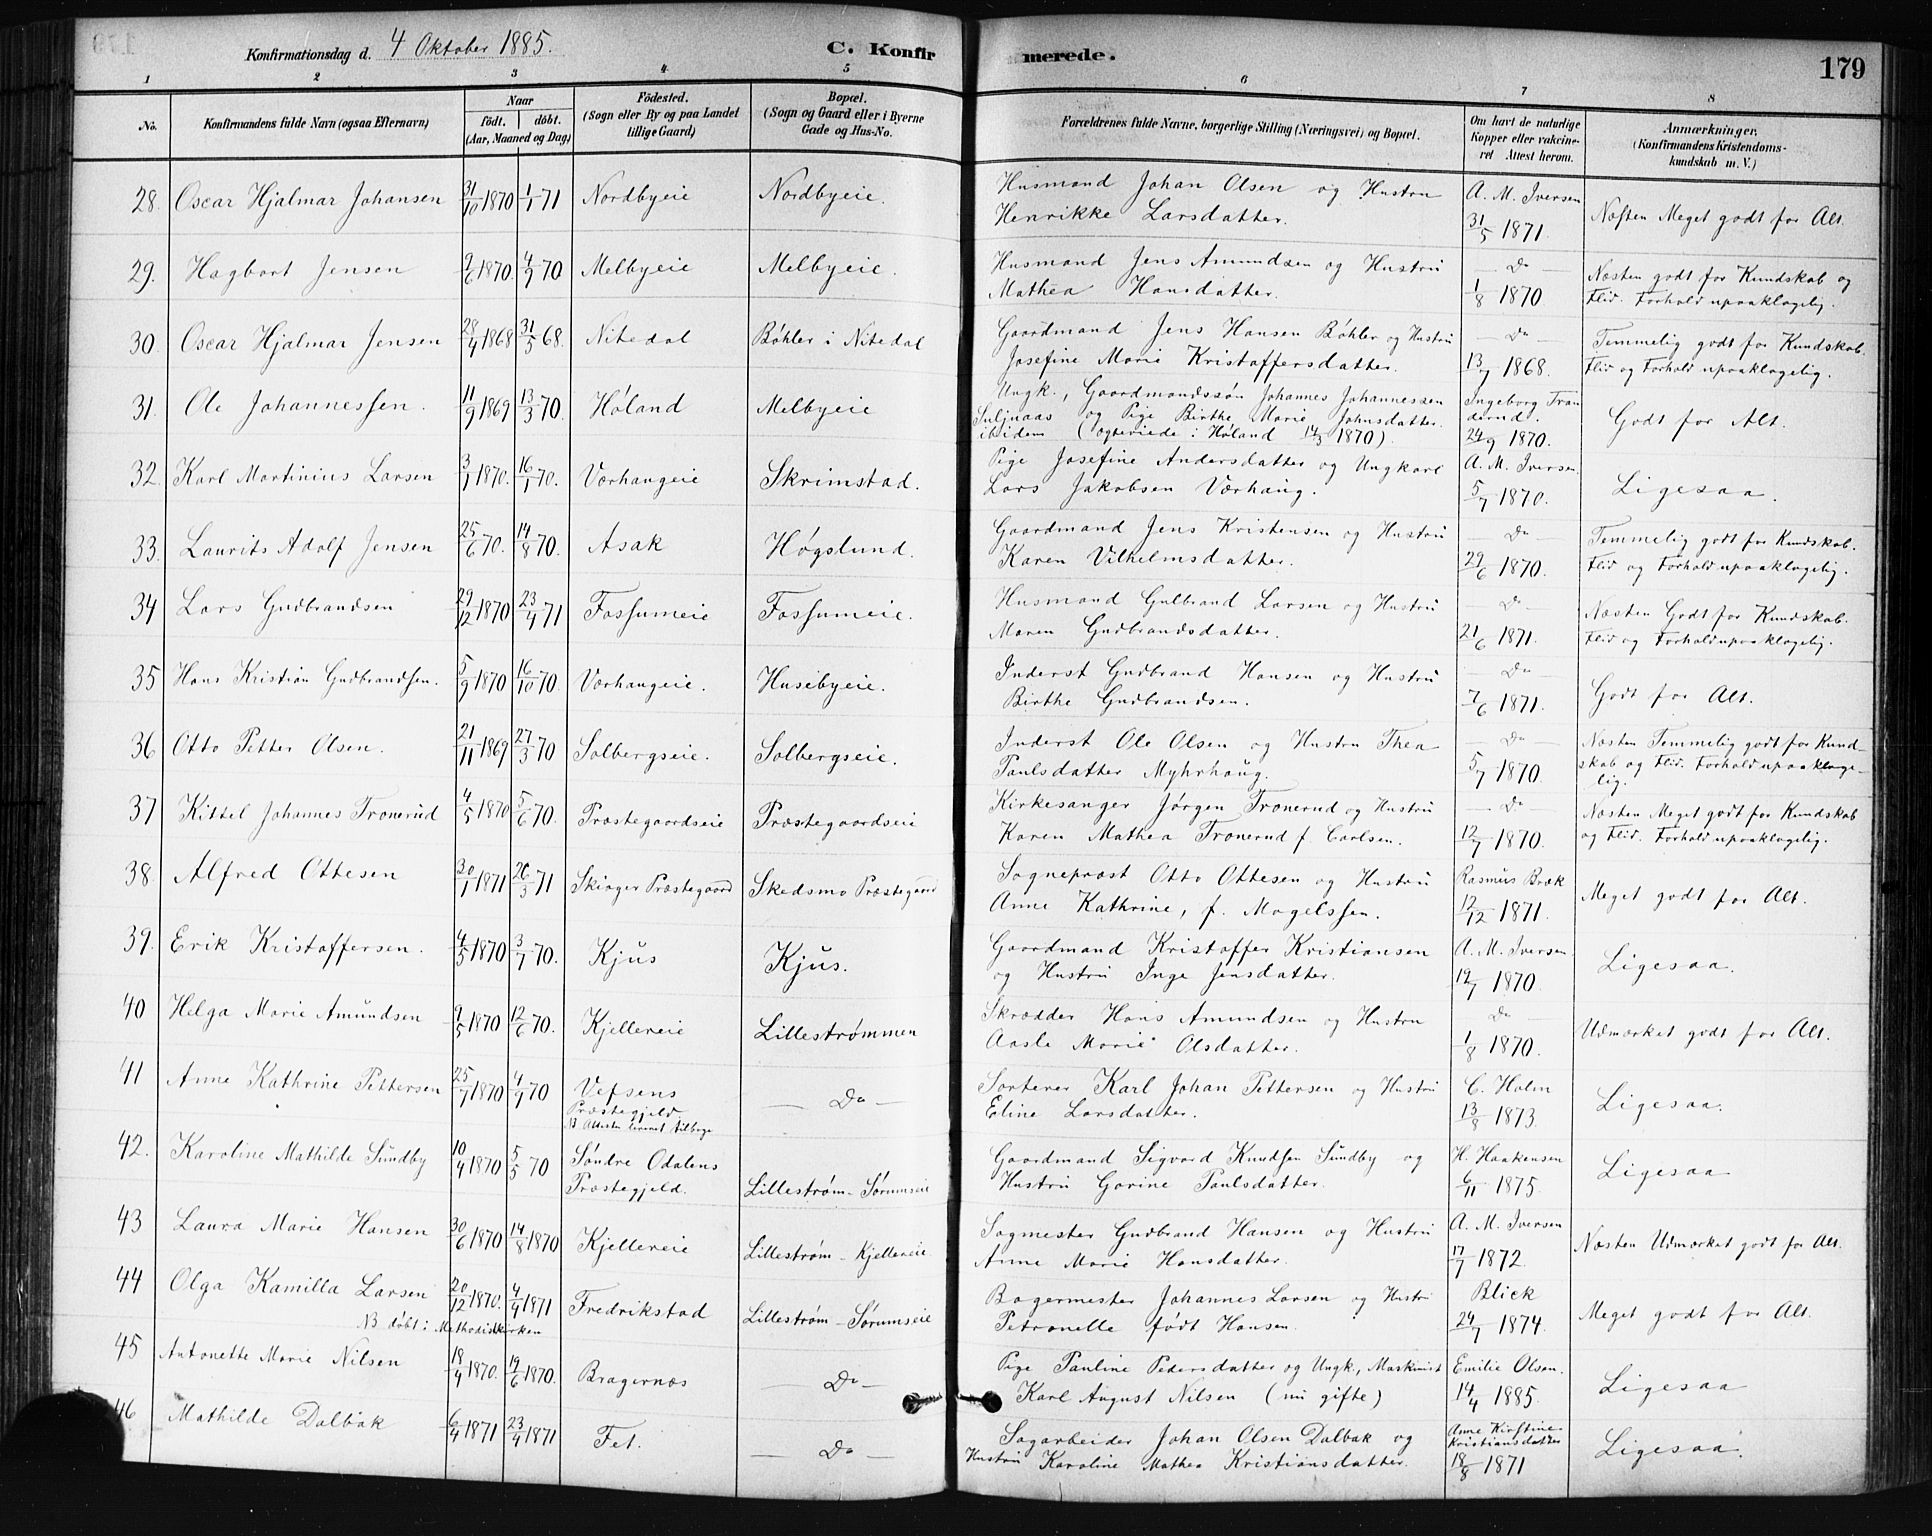 Konfirmationsdag d. 4 Oktober 1885. C. Konfirmerede. 179
1 2 3 4 5 6 7 8
No. Konfirmandens fulde Navn (ogsaa Efternavn) Naar født. døbt. (Aar, Maaned og Dag) Fødested. (Sogn eller By og paa Landet tillige Gaard) Bopæl. (Sogn og Gaard eller i Byerne Gade og Hus-No. Forældrenes fulde Navne, borgerlige Stilling (Næringsvei) og Bopæl. Om havt de naturlige Kopper eller vakcineret Attest herom. Anmærkninger. (Konfirmandens Kristendomskundskab m. V.)
28. Oscar Hjalmar Johansen 31/10 1870 1/1 71 Nordbyeie Nordbyeie. Husmand Johan Olsen og Hustru Henrikke Larsdatter. A. M. Iversen 31/5 1871. Næsten Meget godt for Alt.
29. Hagbart Jensen 2/6 1870. 4/9 70 Melbyeie Melbyeie. Husmand Jens Amundsen og Hustru Mathea Hansdatter. — Do — 1/8 1870. Næsten godt for Kundskab og Flid. Forhold upaaklagelig.
30. Oscar Hjalmar Jensen 28/4 1868 31/5 68. Nitedal Bøhler i Nitedal Gaardmand Jens Hansen Bøhler og Hustru Josefine Marie Kristoffersdatter. — Do — 13/7 1868. Temmelig godt for Kundskab. Flid og Forhold upaaklagelig.
31. Ole Johannessen. 11/9 1869 13/3 70. Høland Melbyeie Ungk., Gaardmandssøn Johannes Johannessen Suljuaas og Pige Birthe Marie Johnsdatter. ibidem (ægteviede i Høland 14/3 1870). Ingeborg Tranderud. 24/9 1870. Godt for Alt.
32. Karl Martinius Larsen 3/1 1870. 16/1 70. Værhaugeie Skrimstad. Pige Josefine Andersdatter og Ungkarl Lars Jakobsen Værhaug. A. M. Iversen. 5/7 1870. Ligesaa.
33. Laurits Adolf Jensen 25/6 70. 14/8 70. Asak Høgslund. Gaardmand Jens Kristensen og Hustru Karen Vilhelmsdatter. — Do — 29/6 1870. Temmelig godt for Kundskab. Flid og Forhold upaaklagelig.
34 Lars Gudbrandsen 29/12 1870 23/4 71 Fossumeie Fossumeie. Husmand Gulbrand Larsen og Hustru Maren Gudbrandsdatter. — Do — 21/6 1871. Næsten Godt for Kundskab. Flid og Forhold upaaklagelig.
35 Hans Kristian Gudbrandsen. 5/9 1870 16/10 70. Værhaugeie. Husebyeie. Inderst Gudbrand Hansen og Hustru Birthe Gudbrandsen. — Do — 7/6 1871. Godt for Alt.
36 Otto Petter Olsen. 21/11 1869 27/3 70 Solbergseie. Solbergseie. Inderst Ole Olsen og Hustru Thea Paulsdatter Myhrhaug. — Do — 5/7 1870. Næsten Temmelig godt for Kundskab og Flid. Forhold upaaklagelig.
37 Kittel Johannes Tronerud 4/5 1870 5/6 70. Præstegaardseie Præstegaardseie Kirkesanger Jørgen Tronerud og Hustru Karen Mathea Tronerud f. Carlsen. — Do — 12/7 1870. Næsten Meget godt for Kundskab og Flid. Forhold upaaklagelig.
38. Alfred Ottesen 30/1 1871 26/3 71 Skiager Præstegaard Skedsmo Præstegaard Sogneprest Otto Ottesen og Hustru Anne Kathrine, f. Magelssen. Rasmus Bræk 12/12 1871. Meget godt for Alt.
39. Erik Kristoffersen. 4/5 1870 3/7 70. Kjus Kjus. Gaardmand Kristoffer Kristiansen og Hustru Inge Jensdatter. A. M. Iversen. 12/7 1870. Ligesaa.
40 Helga Marie Amundsen 9/5 1870 12/6 70. Kjellereie Lillestrømmen Skrædder Hans Amundsen og Hustru Aasle Marie Olsdatter. Do — 1/8 1870. Udmærket godt for Alt.
41 Anne Kathrine Pettersen 25/7 1870 4/9 70 Vefsens Præstegjeld NB Attesten leveret tilbage — Do — Sorterer Karl Johan Pettersen og Hustru Eline Larsdatter. C. Holm 13/8 1873. Ligesaa.
42. Karoline Mathilde Sundby 10/4 1870 5/5 70 Søndre Odalens Præstegjeld. Lillestrøm-Sørumseie Gaardmand Sigvard Knudsen Sundby og Hustru Gorine Paulsdatter. H. Haakensen 6/11 1875. Ligesaa
43 Laura Marie Hansen 30/6 1870 14/8 1870 Kjellereie Lillestrøm-Kjellereie Sagmester Gudbrand Hansen og Hustru Anne Marie Hansdatter. A. M. Iversen 17/7 1872. Næsten Udmærket godt for Alt.
44 Olga Kamilla Larsen NB døbt i Methodistkirken 20/12 1870. 4/4 1871 Fredrikstad Lillestrøm-Sørumseie Bagermester Johannes Larsen og Hustru Petronelle født Hansen. Blick 24/7 1874. Meget godt for Alt.
45 Antonette Marie Nilsen 18/4 1870. 19/6 1870. Bragernæs Do — Pige Pauline Pedersdatter og Ungk., Maskinist Karl August Nilsen (nu gifte) Emilie Olsen. 14/4 1885. Ligesaa
46 Mathilde Dalbak 6/4 1871 23/4 1871 Fet. — Do — Sagarbeider Johan Olsen Dalbak og Hustru Karoline Mathea Kristiansdatter. Anne Kirstine Kristiansdatter 18/8 1871 Ligesaa.